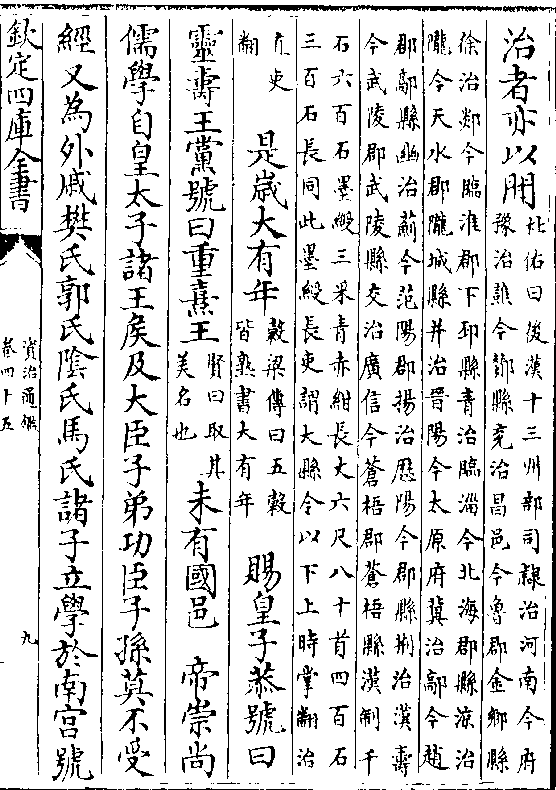 治者亦以聞
杜佑曰後漢十三州部司隷治河南今府
豫治譙今鄼縣兖治昌邑今魯郡金鄉縣
徐治郯今臨淮郡下邳縣青治臨淄今北海郡縣凉治
隴今天水郡隴城縣并治晉陽今太原府冀治鄗今趙
郡鄗縣幽治薊今范陽郡揚治歷陽今郡縣荆治漢壽
今武陵郡武陵縣交治廣信今蒼梧郡蒼梧縣漢制千
石六百石墨綬三采青赤紺長丈六尺八十首四百石
三百石長同此墨綬長吏謂大縣令以下上時掌翻治
直吏
翻
是歲大有年
穀梁傳曰五穀
皆熟書大有年
賜皇子恭號曰
靈壽王黨號曰重熹王
賢曰取其
美名也
未有國邑 帝崇尚
儒學自皇太子諸王矦及大臣子弟功臣子孫莫不受
經又為外戚樊氏郭氏隂氏馬氏諸子立學於南宮號
欽定四庫全書
資治通鑑
卷四十五
九